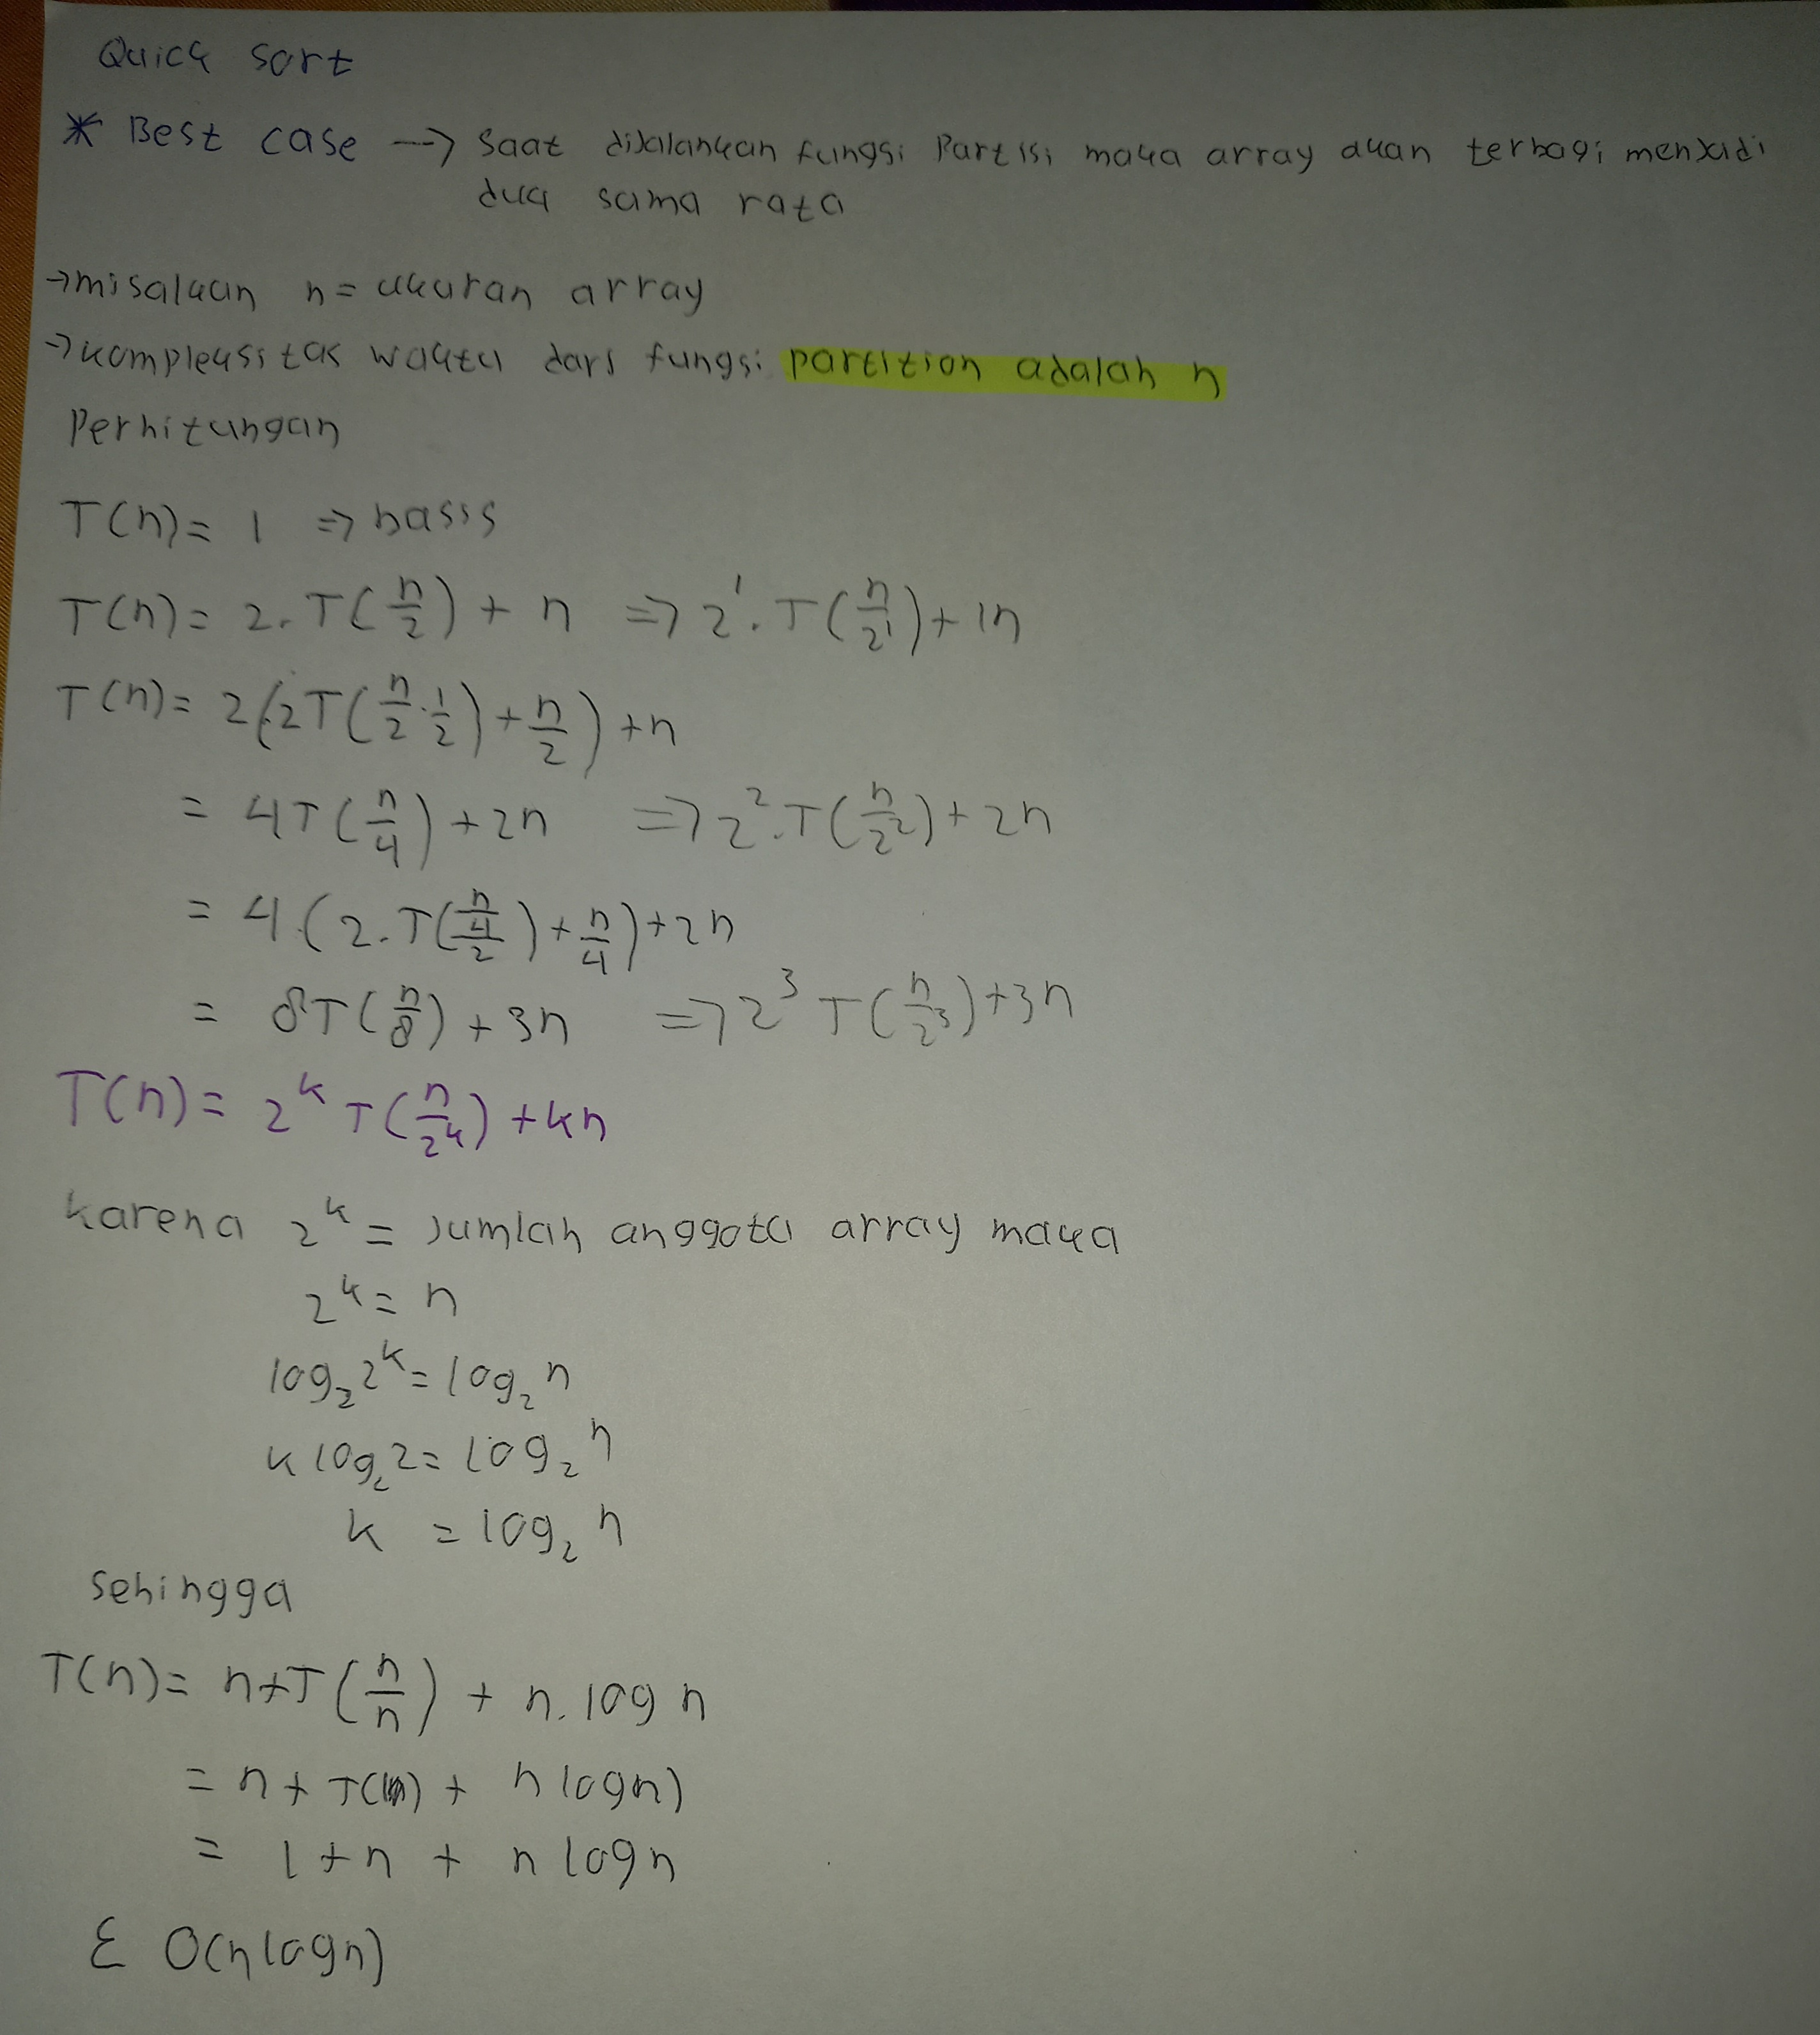 Quick sort
* Best case --> saat dijalankan fungsi Partisi maka array akan terbagi menjadi
dua sama rata
→ misalkan n = ukuran array
→ kompleksitas waktu dari fungsi partition adalah n
Perhitungan
T(n) = 1 => basis
T(n) = 2. T(n/2) + n => 2^1. T(n/2^1) + 1n
T(n) = 2(2T(n/2 . 1/2) + n/2) + n
= 4T(n/4) + 2n => 2^2. T(n/2^2) + 2n
= 4(2. T((n/4)/2) + n/4) + 2n
= 8T(n/8) + 3n => 2^3 T(n/2^3) + 3n
T(n) = 2^k T(n/2^k) + kn
karena 2^k = jumlah anggota array maka
2^k = n
log₂ 2^k = log₂ n
k log₂ 2 = log₂ n
k = log₂ n
sehingga
T(n) = n + T(n/n) + n. log n
= n + T(1) + n log n)
= 1 + n + n log n
ε O(n log n)